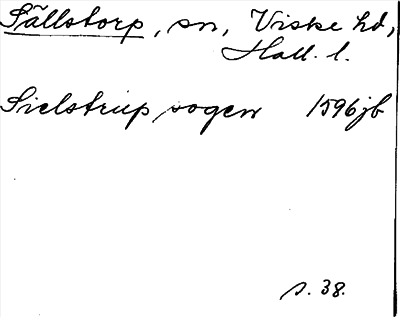 Sällstorp, sn, Viske hd,
Hall. l.
Sielstrup sogen 1596 jb
s. 38.